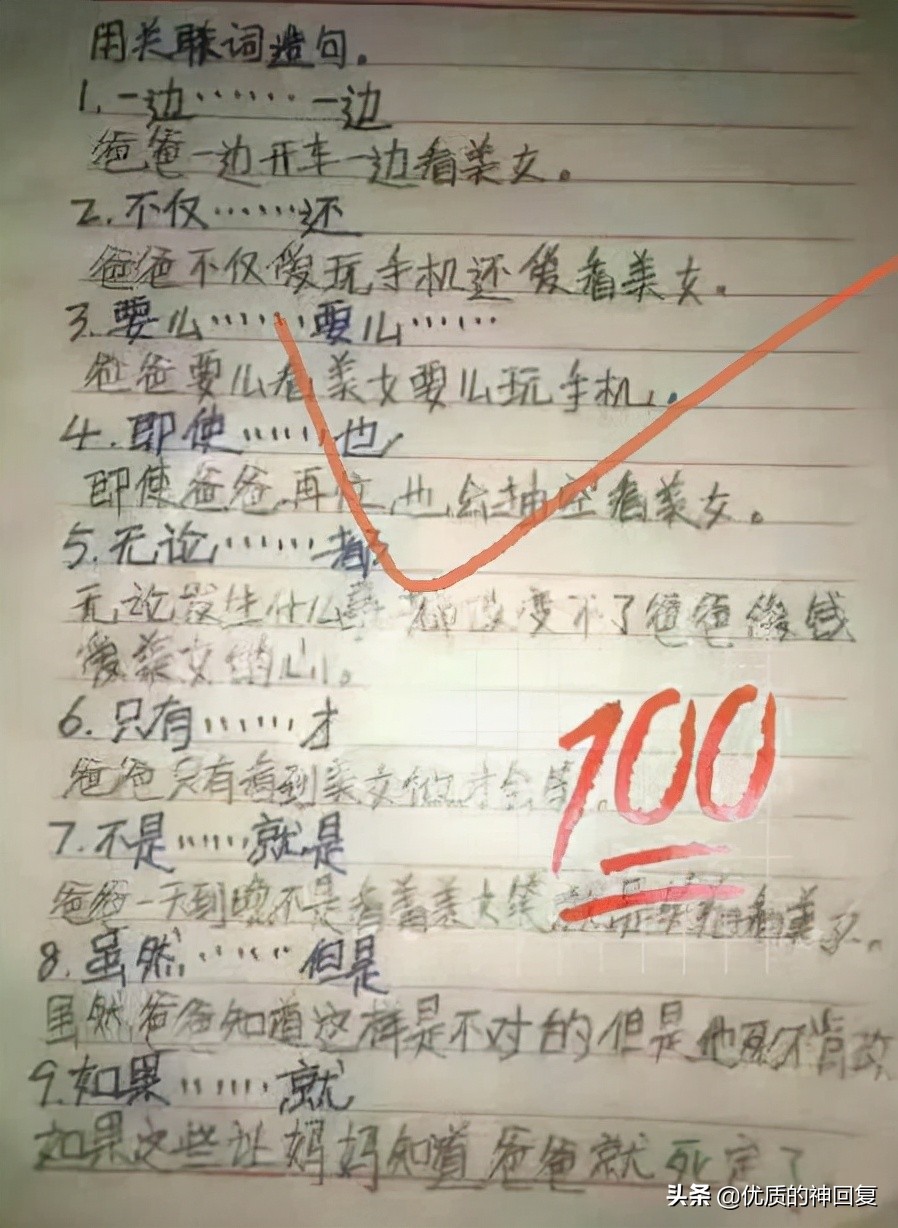 用关联词造句。
1.一边……一边
爸爸一边开车一边看美女。
2.不仅……还
爸爸不仅爱玩手机还爱看美女。
3.要么……要么……
爸爸要么看美女要么玩手机。
4.即使……也
即使爸爸再忙也会抽空看美女。
5.无论……都
无论发生什么事都改变不了爸爸
爱美女的心。
6.只有……才
爸爸只有看到美女他才会笑。
7.不是……就是
爸爸一天到晚不是看着美女笑就是
8.虽然……但是
虽然爸爸知道这样是不对的但是他
9.如果……就
如果这些让妈妈知道爸爸就死定了
100
头条 @优质的神回复